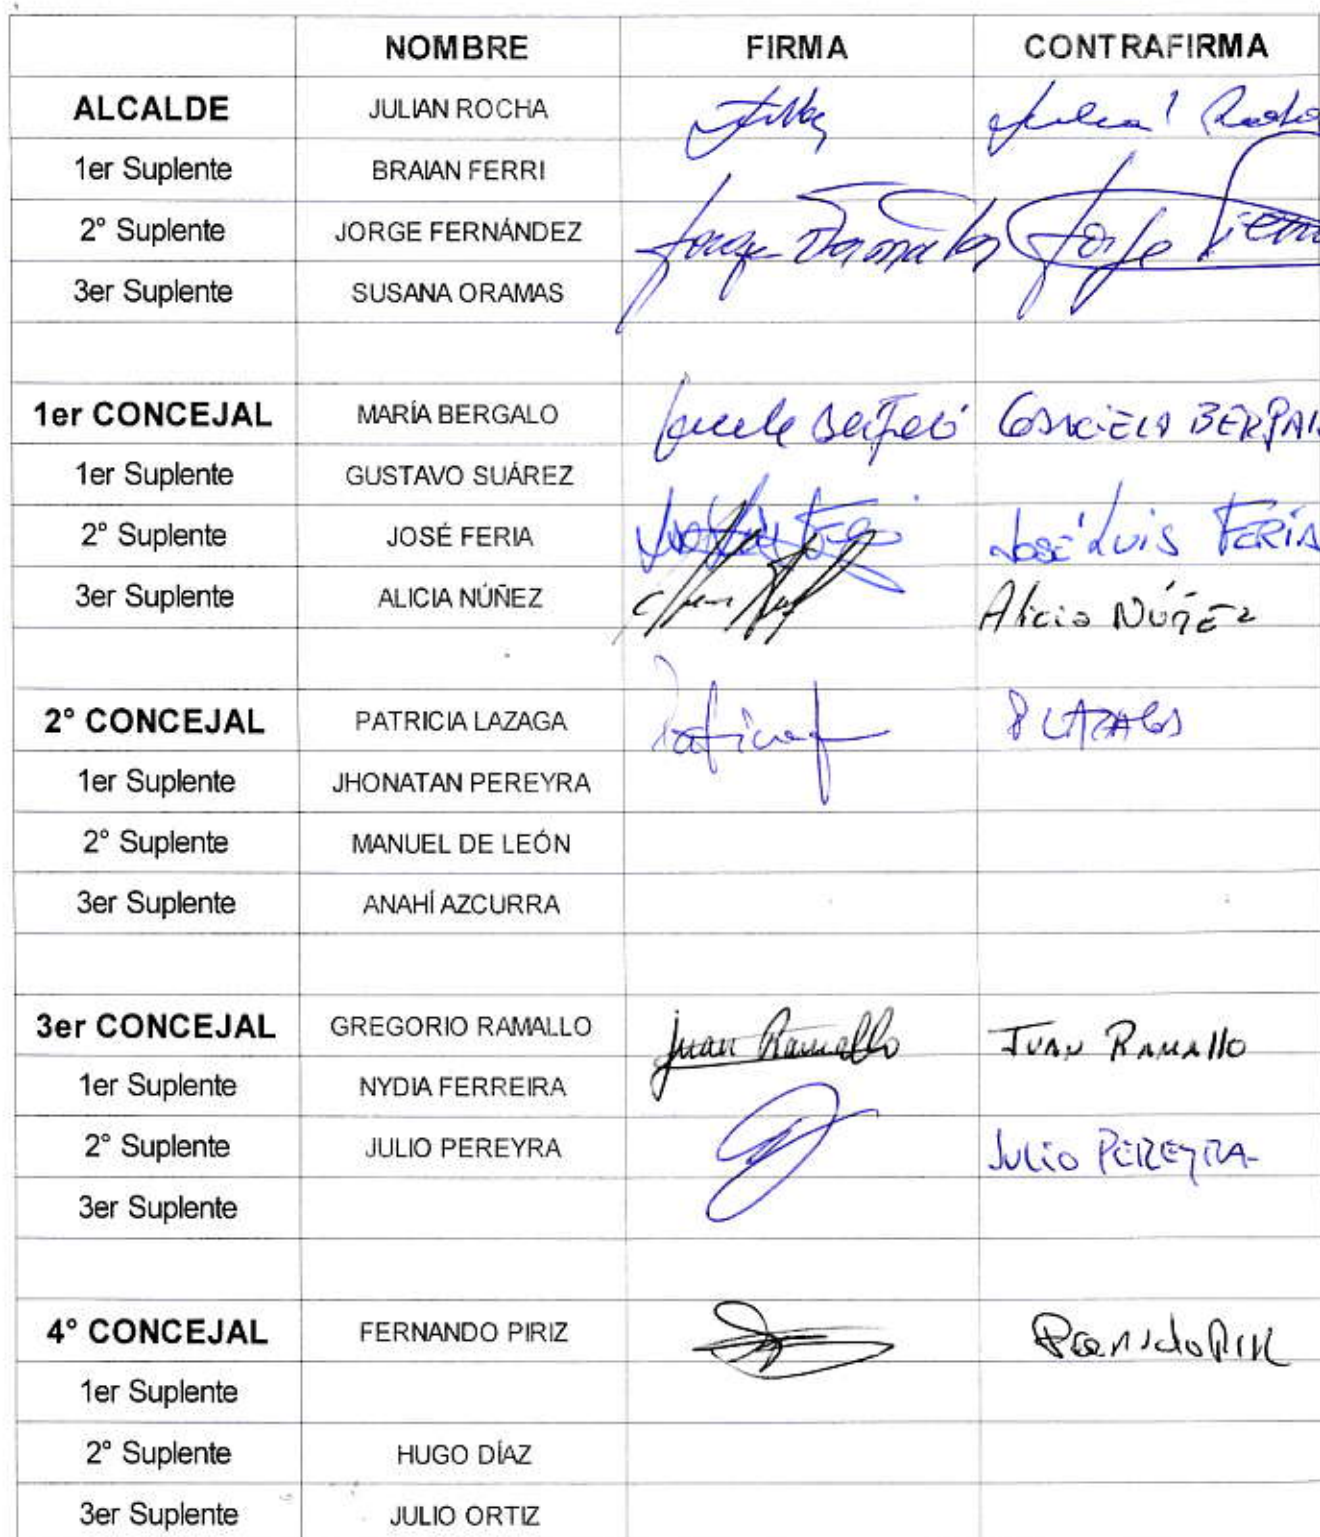 NOMBRE FIRMA CONTRAFIRMA
ALCALDE JULIAN ROCHA
1er Suplente BRAIAN FERRI
2° Suplente JORGE FERNÁNDEZ Jorge Fernandez Jorge
3er Suplente SUSANA ORAMAS
1er CONCEJAL MARÍA BERGALO
1er Suplente GUSTAVO SUÁREZ
2° Suplente JOSÉ FERIA José Luis FERIA
3er Suplente ALICIA NÚÑEZ Alicia NÚÑEZ
2° CONCEJAL PATRICIA LAZAGA
1er Suplente JHONATAN PEREYRA
2° Suplente MANUEL DE LEÓN
3er Suplente ANAHÍ AZCURRA
3er CONCEJAL GREGORIO RAMALLO Juan Ramallo JUAN RAMALLO
1er Suplente NYDIA FERREIRA
2° Suplente JULIO PEREYRA JULIO PEREYRA-
3er Suplente
4° CONCEJAL FERNANDO PIRIZ
1er Suplente
2° Suplente HUGO DÍAZ
3er Suplente JULIO ORTIZ